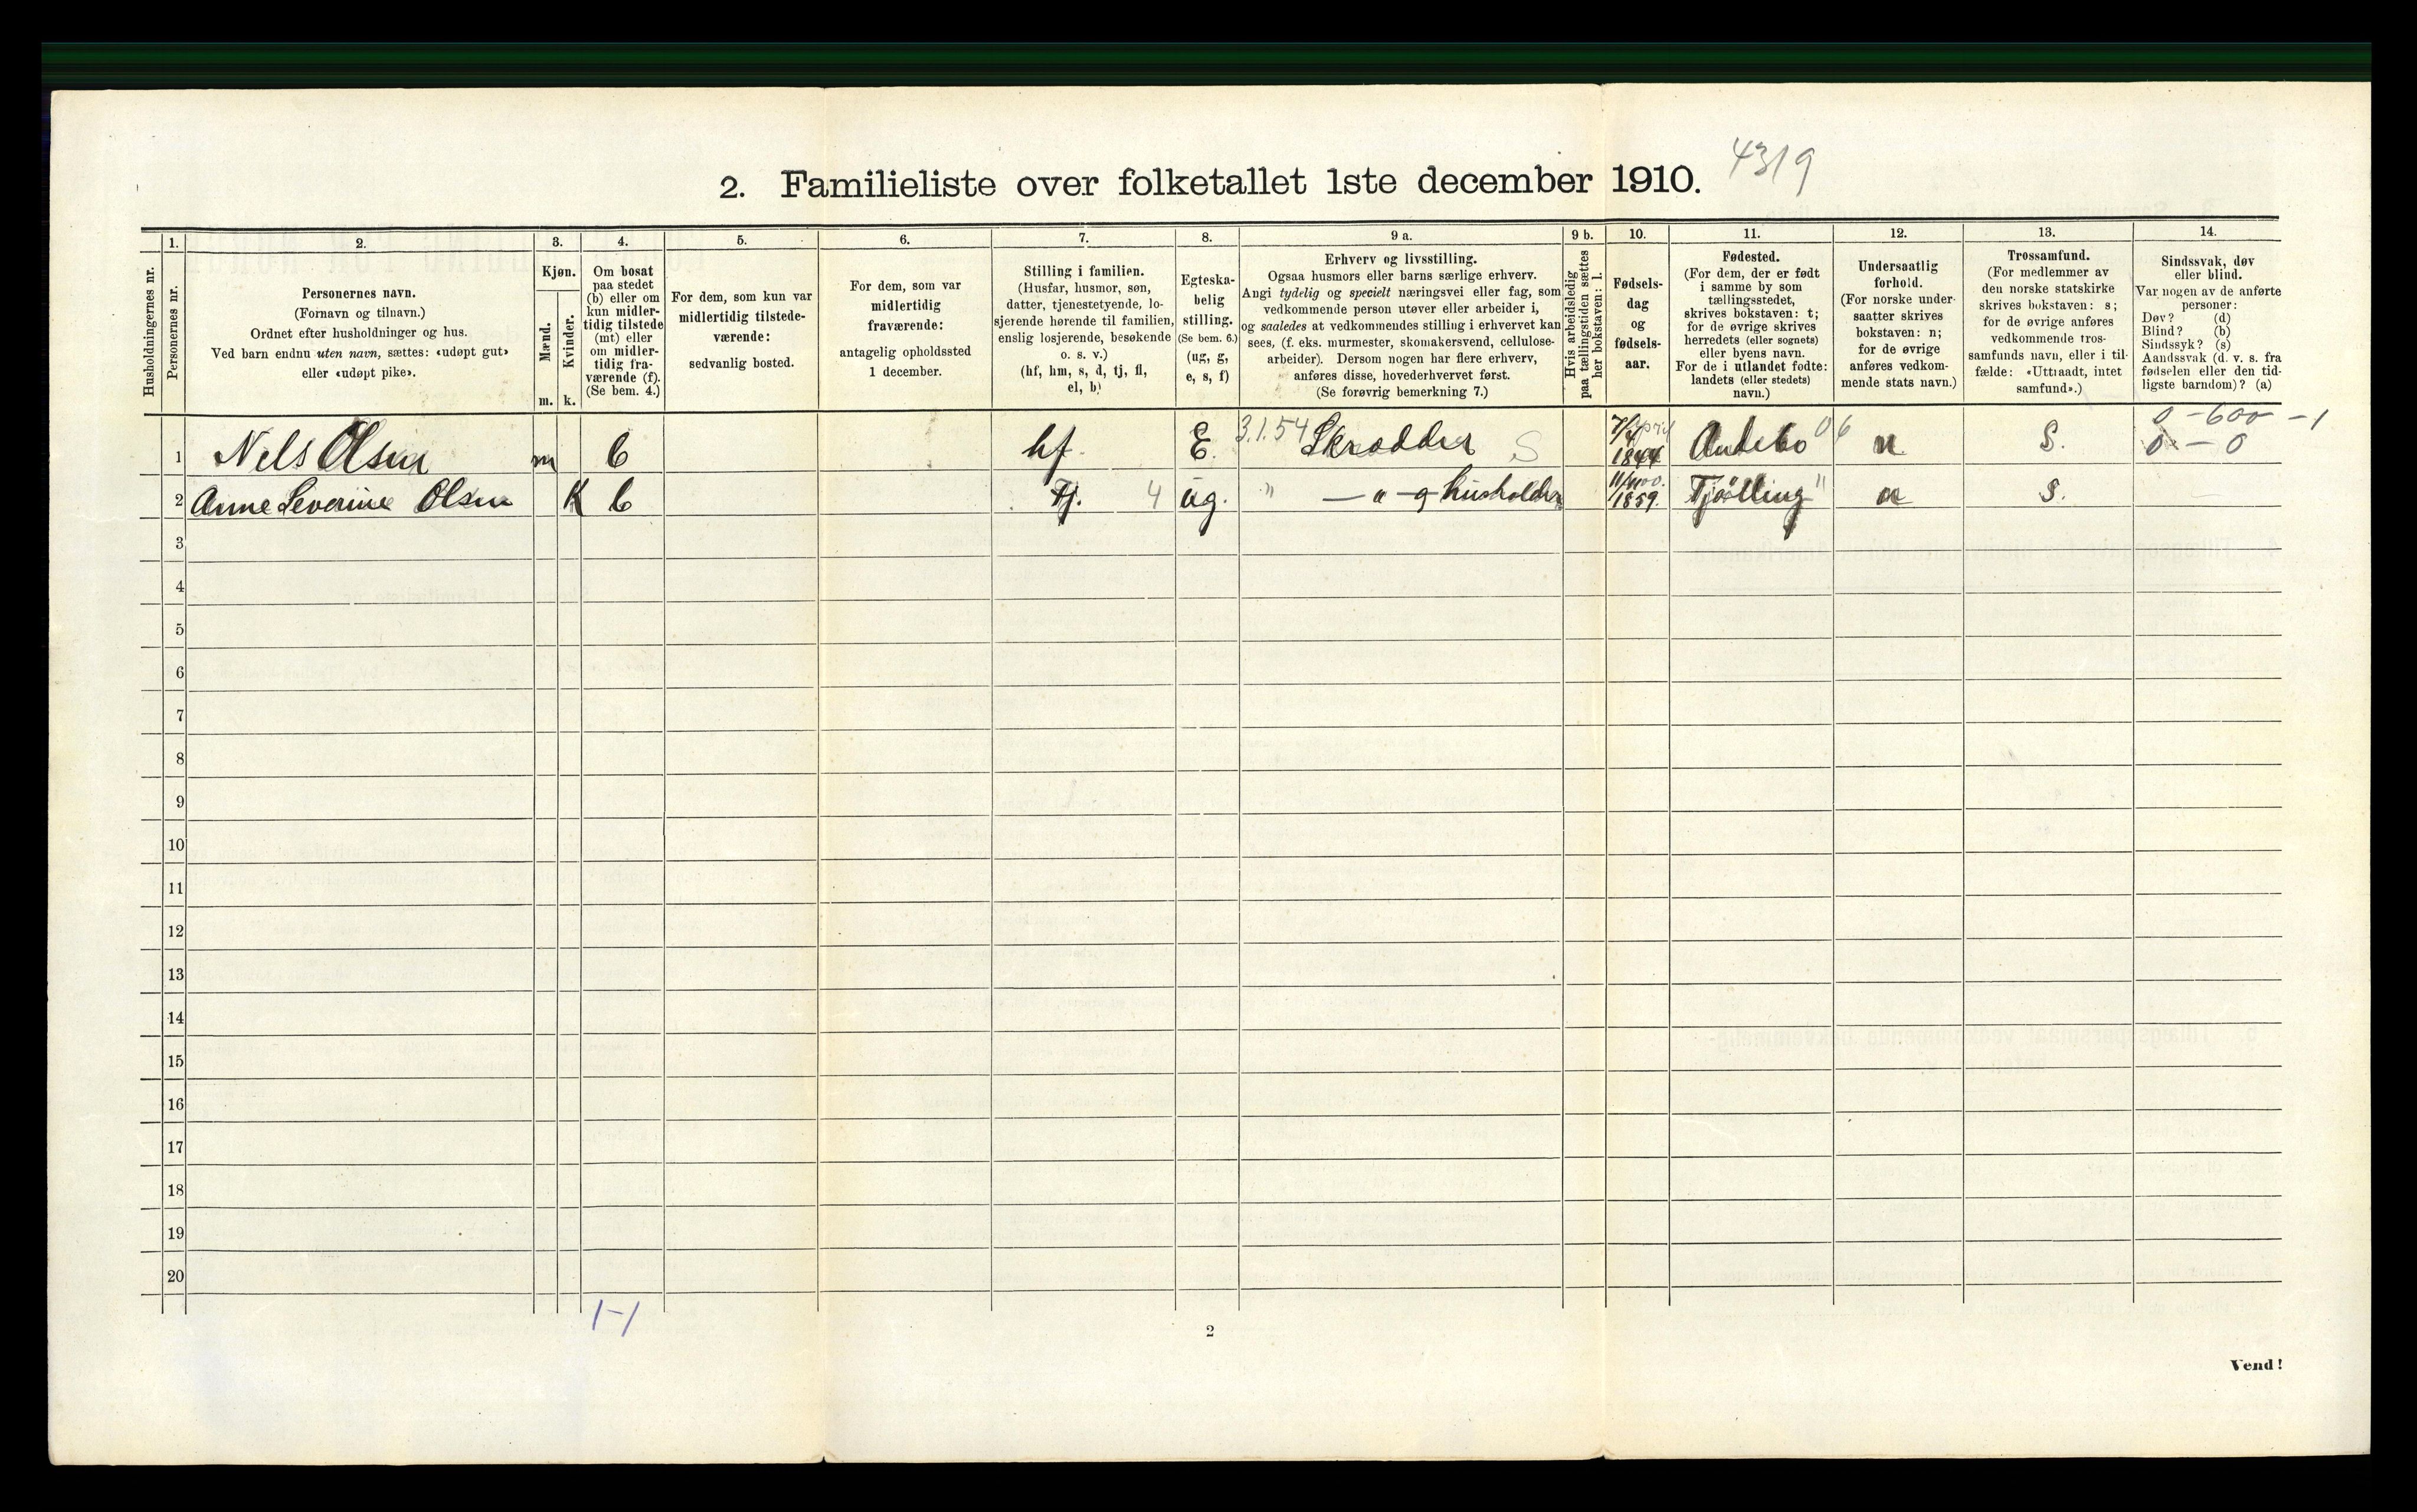 2. Familieliste over folketallet 1ste december 1910. 4319
Husholdningernes nr.
1.
Personernes nr.
2.
Personernes navn.
(Fornavn og tilnavn.)
Ordnet efter husholdninger og hus.
Ved barn endnu uten navn, sættes: «udøpt gut»
eller «udøpt pike».
3.
Kjøn.
Mænd.
Kvinder.
m. k.
4.
Om bosat
paa stedet
(b) eller om
kun midler-
tidig tilstede
(mt) eller
om midler-
tidig fra-
værende (f).
(Se bem. 4.)
5.
For dem, som kun var
midlertidig tilstede-
værende:
sedvanlig bosted.
6.
For dem, som var
midlertidig
fraværende:
antagelig opholdssted
1 december.
7.
Stilling i familien.
(Husfar, husmor, søn,
datter, tjenestetyende, lo-
sjerende hørende til familien,
enslig losjerende, besøkende
o. s. v.)
(hf, hm, s, d, tj, fl,
el, b)
8.
Egteska-
belig
stilling.
(Se bem. 6.)
(ug, g,
e, s, f)
9 a.
Erhverv og livsstilling.
Ogsaa husmors eller barns særlige erhverv.
Angi tydelig og specielt næringsvei eller fag, som
vedkommende person utøver eller arbeider i,
og saaledes at vedkommendes stilling i erhvervet kan
sees, (f. eks. murmester, skomakersvend, cellulose-
arbeider). Dersom nogen har flere erhverv,
anføres disse, hovederhvervet først.
(Se forøvrig bemerkning 7.)
9 b.
Hvis arbeidsledig
paa tællingstiden sættes
her bokstaven: l.
10.
Fødsels-
dag
og
fødsels-
aar.
11.
Fødested.
(For dem, der er født
i samme by som
tællingsstedet,
skrives bokstaven: t;
for de øvrige skrives
herredets (eller sognets)
eller byens navn.
For de i utlandet fødte:
landets (eller stedets)
navn.)
12.
Undersaatlig
forhold.
(For norske under-
saatter skrives
bokstaven: n;
for de øvrige
anføres vedkom-
mende stats navn.)
13.
Trossamfund.
(For medlemmer av
den norske statskirke
skrives bokstaven: s;
for de øvrige anføres
vedkommende tros-
samfunds navn, eller i til-
fælde: «Uttraadt, intet
samfund».)
14.
Sindssvak, døv
eller blind.
Var nogen av de anførte
personer:
Døv? (d)
Blind? (b)
Sindssyk? (s)
Aandssvak (d. v. s. fra
fødselen eller den tid-
ligste barndom)? (a)
0 - 600 - 1
1 Nels Olsen m b hf. E. 3.1.54 Skrædder S 7/4 1844 Andebo 06 n. S. 0 - 0
2 Anne Severine Olsen K b Tj. 4 ug. " — " — g husholder 1859. Tjölling " n S.
3
4
5
6
7
8
9
10
11
12
13
14
15
16
17
18
19
20
1-1
2
Vend!